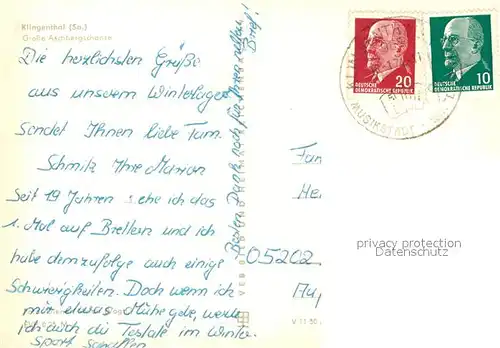 Klingenthal (Sa.)
Große Aschbergschanze
Die herzlichsten Grüße
aus unserem Winterlager
sendet Ihnen liebe Fam.
Schmitz Ihre Marion
Seit 19 Jahren stehe ich das
1. Mal auf Brettern und ich
habe demzufolge auch einige
Schwierigkeiten. Doch wenn ich
mir etwas Mühe gebe, werde
ich auch die Testate im Winter
sport schaffen.
Besten Dank noch für Ihren netten
Brief!
VEB
20
DEUTSCHE
DEMOKRATISCHE REPUBLIK
10
DEUTSCHE
DEMOKRATISCHE REPUBLIK
MUSIKSTADT
Fam
05202
privacy protection
Watermark AKpool.de